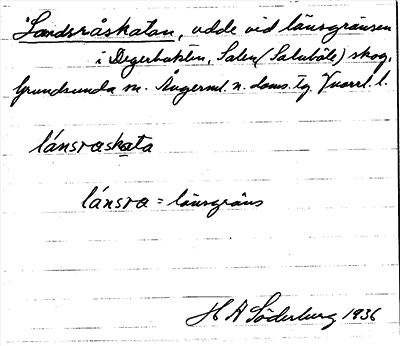 Landsråskatan, udde vid länsgränsen
i Degerbukten, Salen (Saluböle) skog,
Grundsunda sn. Ångerml. n. doms. tg. Vnorrl. l.
lánsraskata
lánsra = länsgräns
H A Söderburg 1936